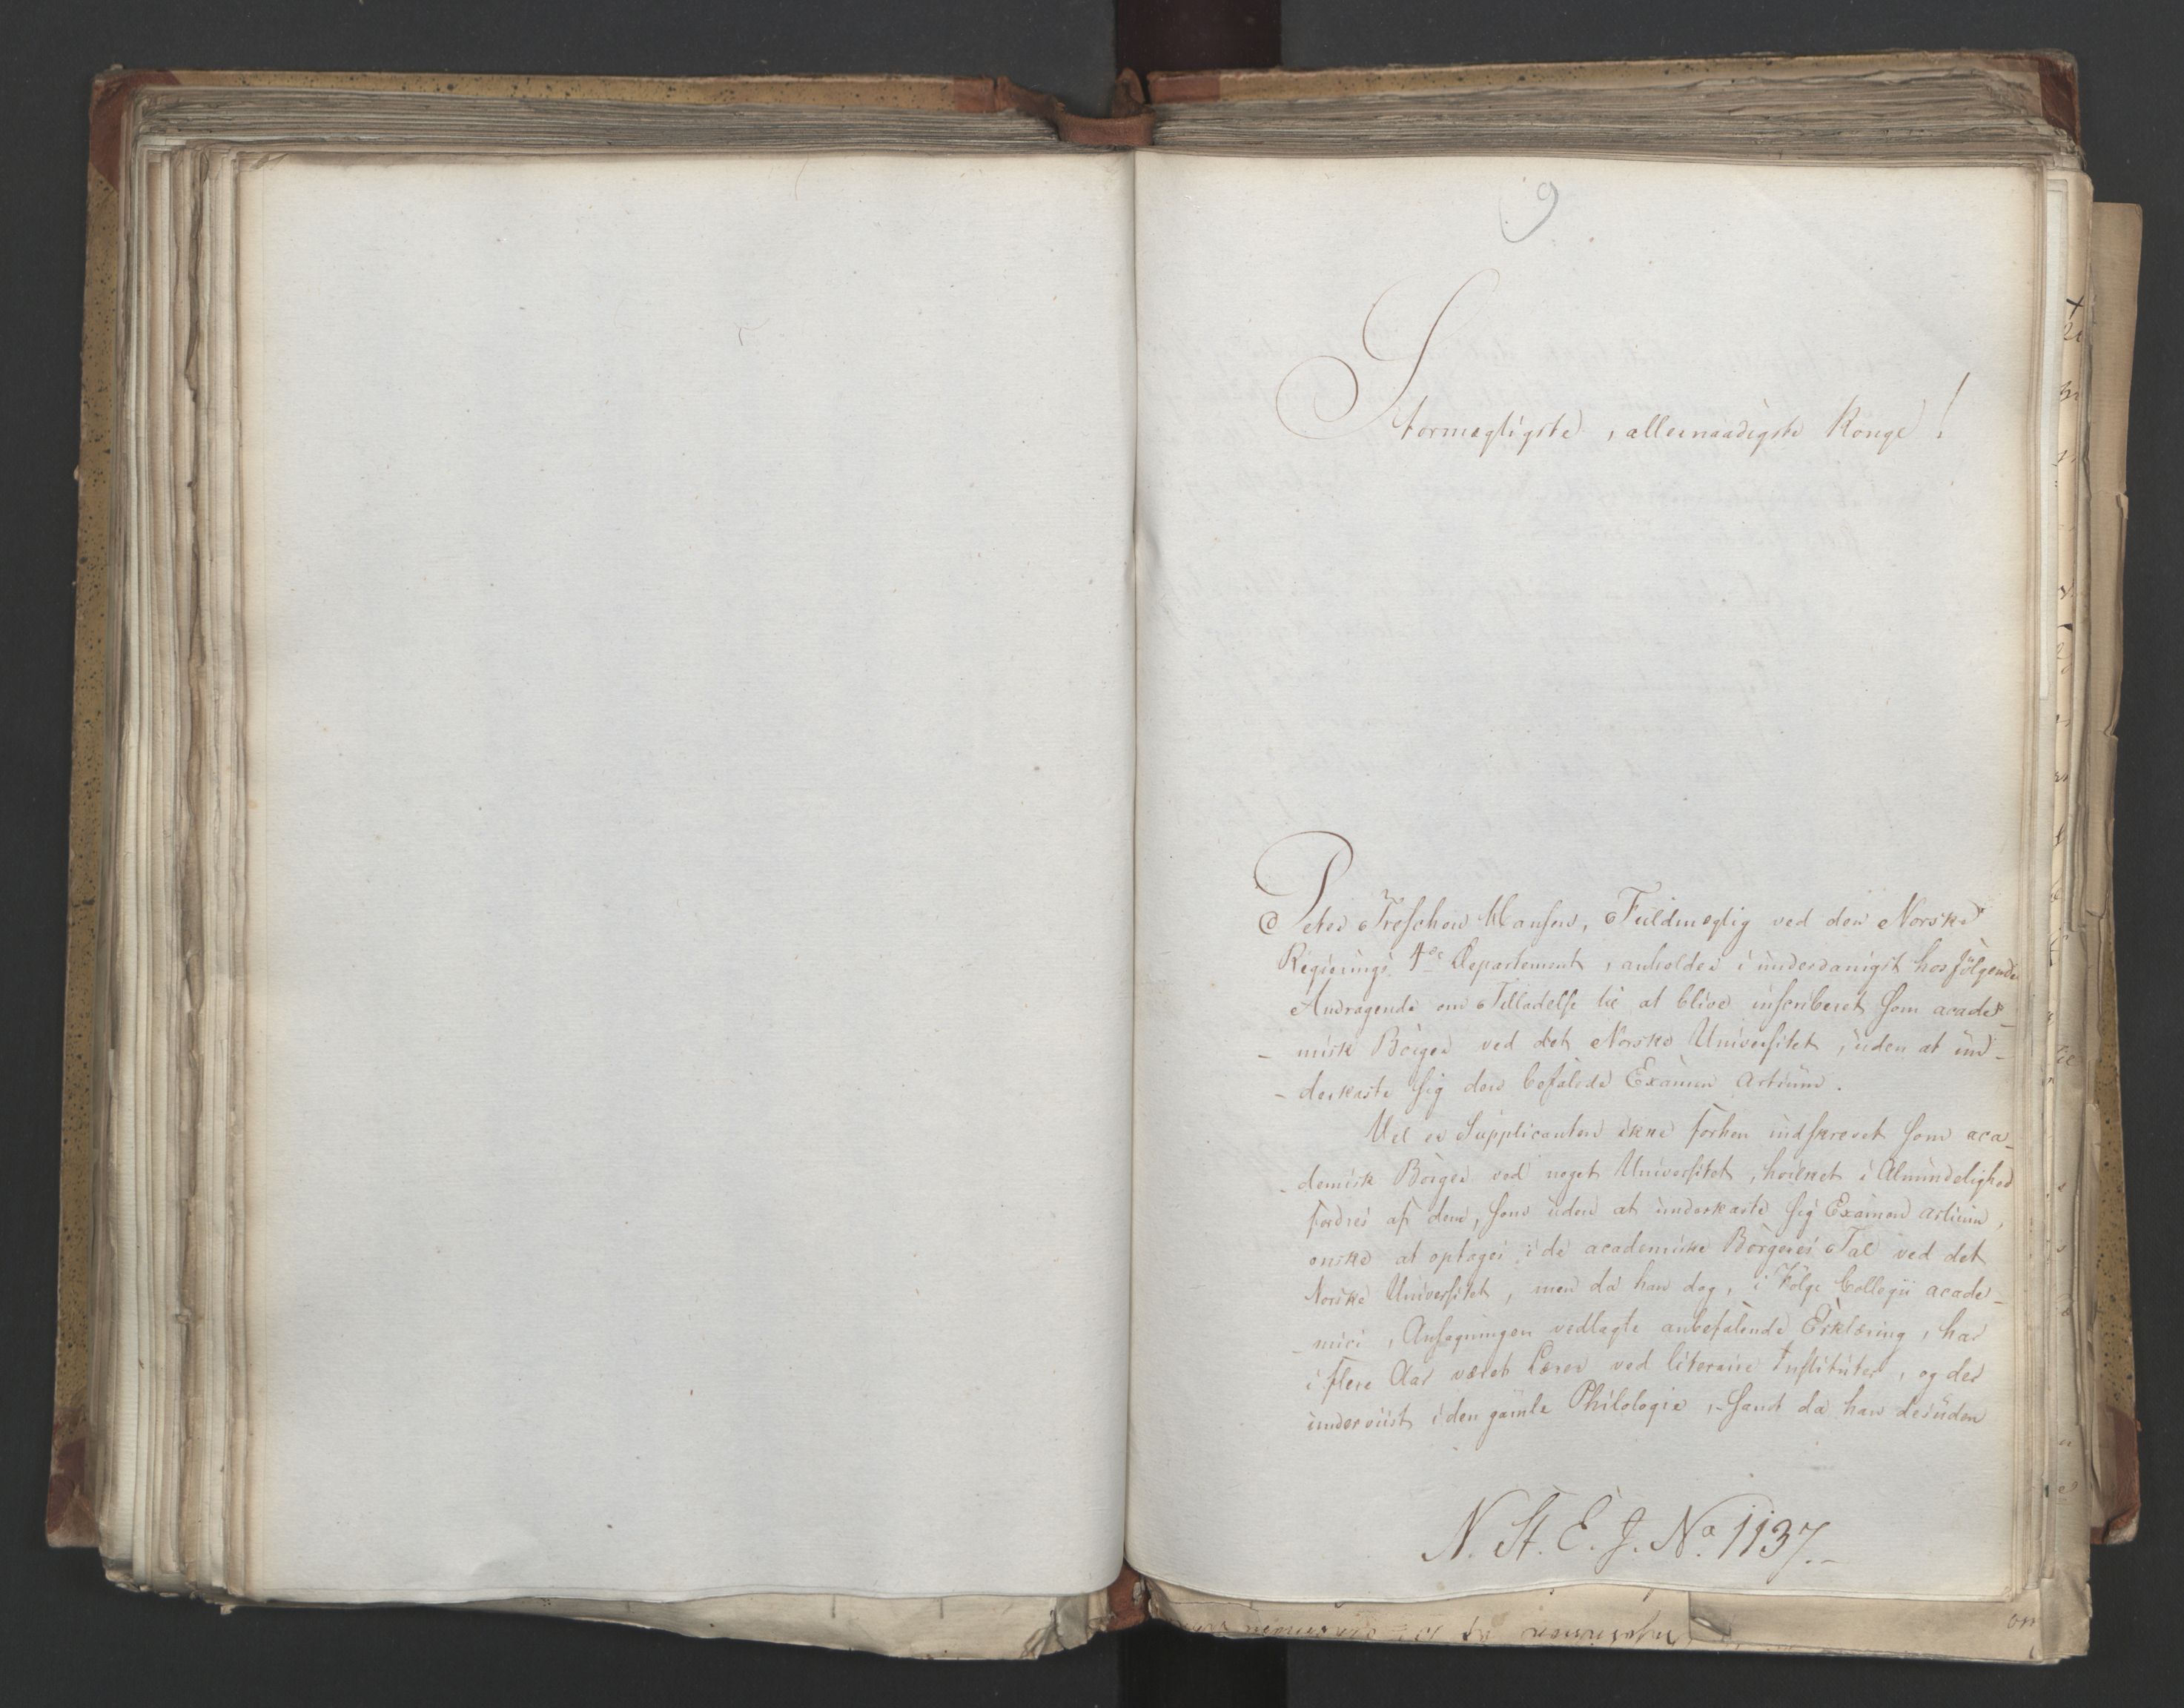 9
Stormægtigste, allernaadigste Konge!
Peter Treschow Hansen, Fuldmægtig ved den Norske
Regjerings 4de Departement, anholder i underdanigst hosfölgende
Andragende om Tilladelse til at blive inscriberet som acade-
- misk Borger ved det Norske Universitet, uden at un-
- derkaste sig den befalede Examen Artium.
Vel er Supplicanten ikke forhen indskrevet som aca-
- demisk Borger ved noget Universitet, hvilket i Almindelighed
fordres af dem, som uden at underkaste sig Examen artium,
önske at optages i de academiske Borgeres Tal ved det
Norske Universitet, men da han dog, i Fölge Collegii acade-
- mici, Ansøgningen vedlagte anbefalende Erklæring, har
i flere Aar været Lærer ved literaire Instituter, og der
underviist i den gamle Philologie, samt da han desuden
N. St. E. J. No. 1137.-